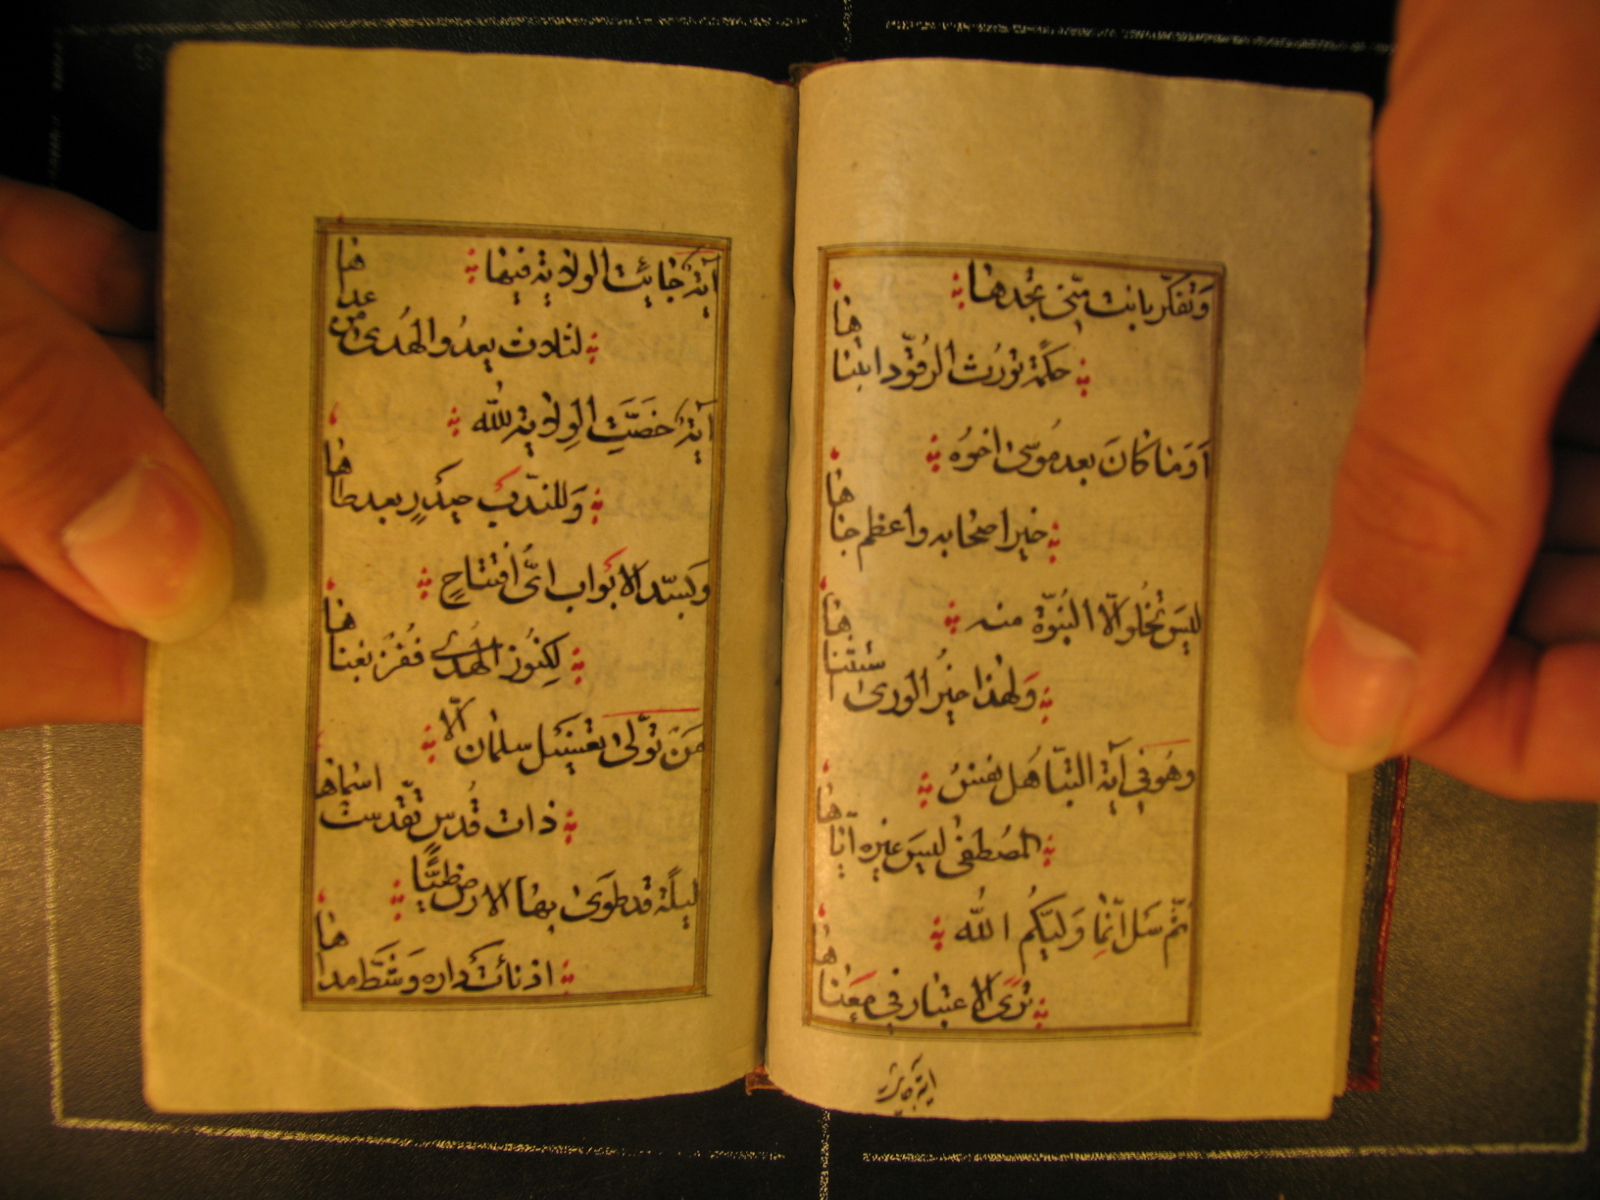 وَتفكّر بانت منّی تجدها
حکمة تورث الرقّود انتباها
اَوَمَا کَانَ بعد مُوسیٰ اخوُه
خیر اصحابه واعظم جاها
لیسَ تخلو الّا النبُوّة منه
وَلهذا خیرُ الوریٰ استثناها
وهُو فی آیة التباهُل نفسُ
المصُطفیٰ لیسَ غیره ایّاها
ثم سَل انّما وَلیّکُم اللّٰه
تریَ الاعتبار فی معَناها
ایة جائت
آیةٌ جائت الولایة فیها
لثلاث یعدو الهُدیٰ من عداها
آیةٌ خصَّتِ الوِلایة للّٰه
وَللندّب حیدَرٍ بعد طاها
وَبسدّ الابواب ایُّ افتتاحٍ
لکِنُوز الهُدیٰ ففُز بغناها
مَنَ تولّیٰ بتغسیل سلمان الّا
ذات قُدسٍ تقدّست اسماها
لیلةً قد طویٰ بها الارض طیًّا
اذ نائت داره وَشَطّ مداها